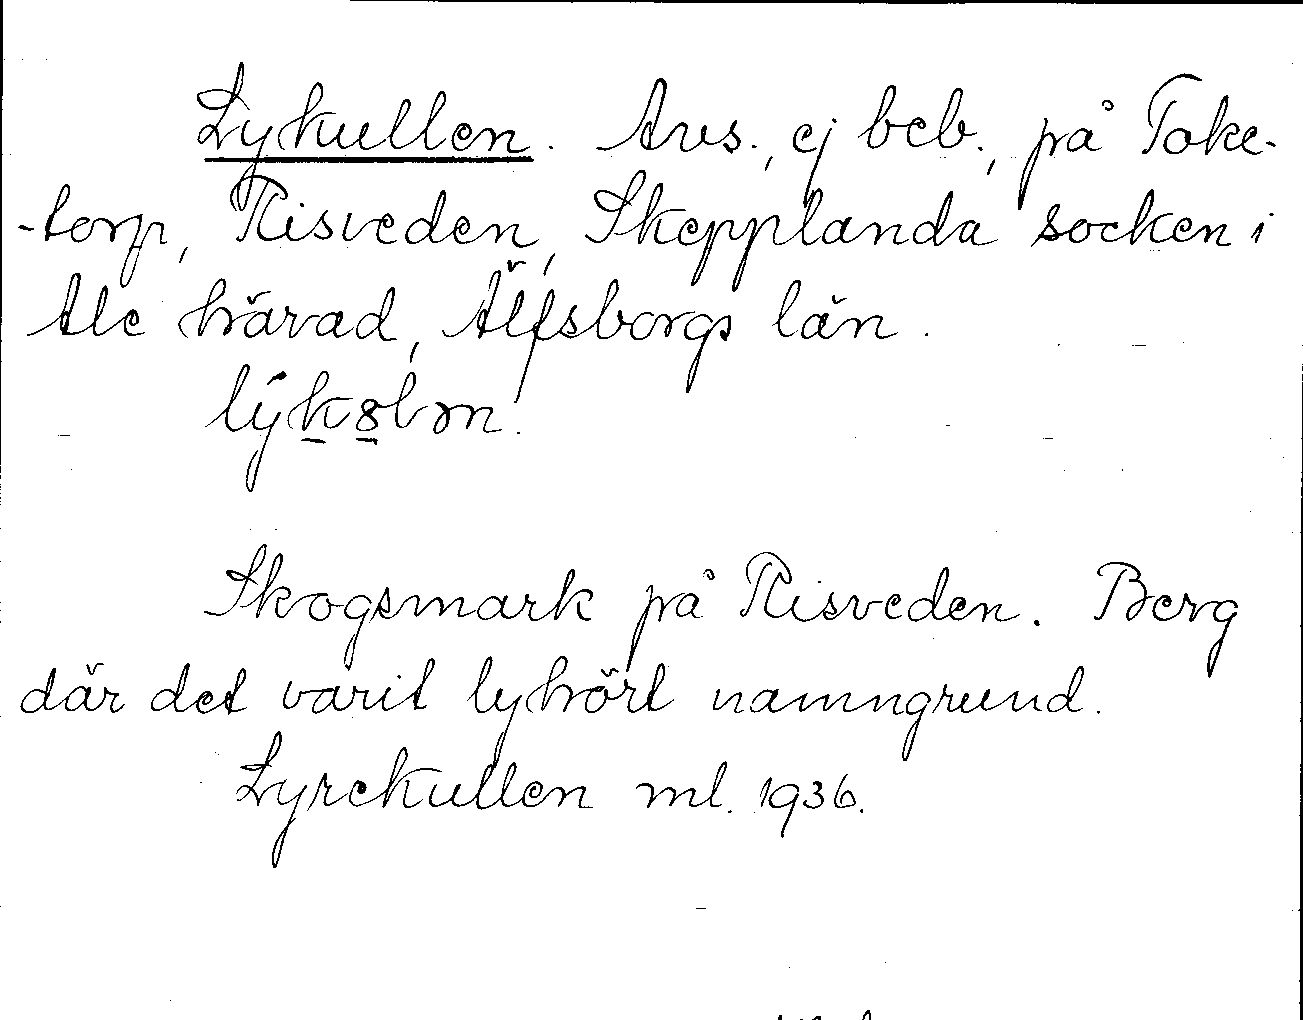 Lykullen. Avs., ej beb., på Toke-
-torp, Risveden, Skepplanda socken i
Ale härad, Älfsborgs län.
Skogsmark på Risveden. Berg
där det varit lyhört namngrund.
Lyrekullen ml. 1936.